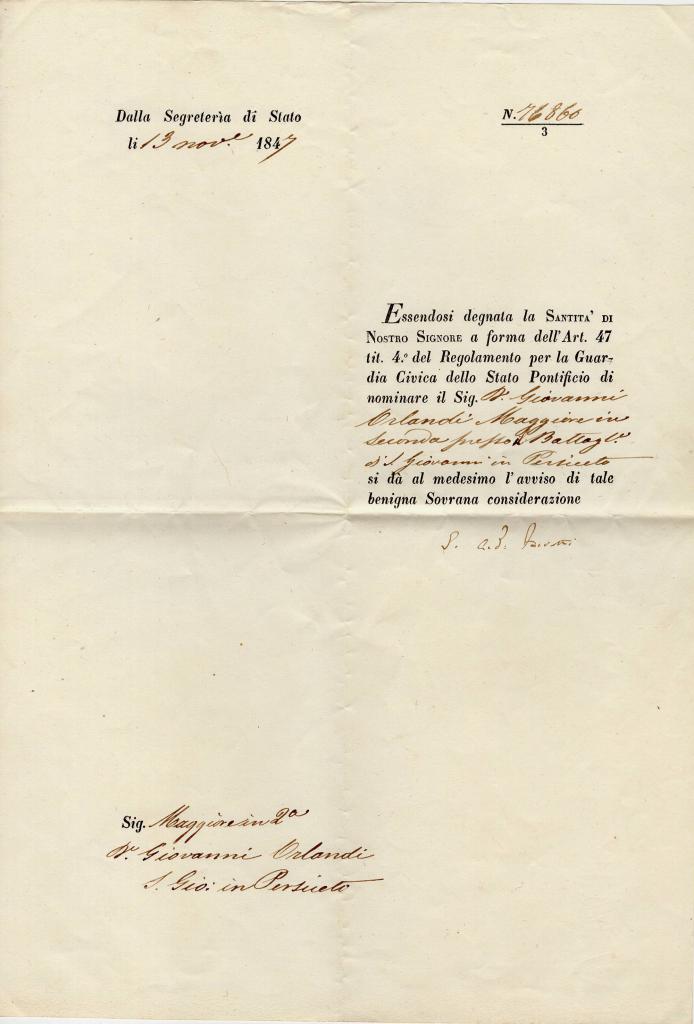 Dalla Segreteria di Stato
li 13 nov.e 1847
N. 76860
3
Essendosi degnata la SANTITA' DI
NOSTRO SIGNORE a forma dell'Art. 47
tit. 4.º del Regolamento per la Guar-
dia Civica dello Stato Pontificio di
nominare il Sig. Dr. Giovanni
Orlandi Maggiore in
Seconda presso il Battagle
di S. Giovanni in Persiceto
si dà al medesimo l'avviso di tale
benigna Sovrana considerazione
Sig. Maggiore in 2a
Dr. Giovanni Orlandi
S. Gio: in Persiceto